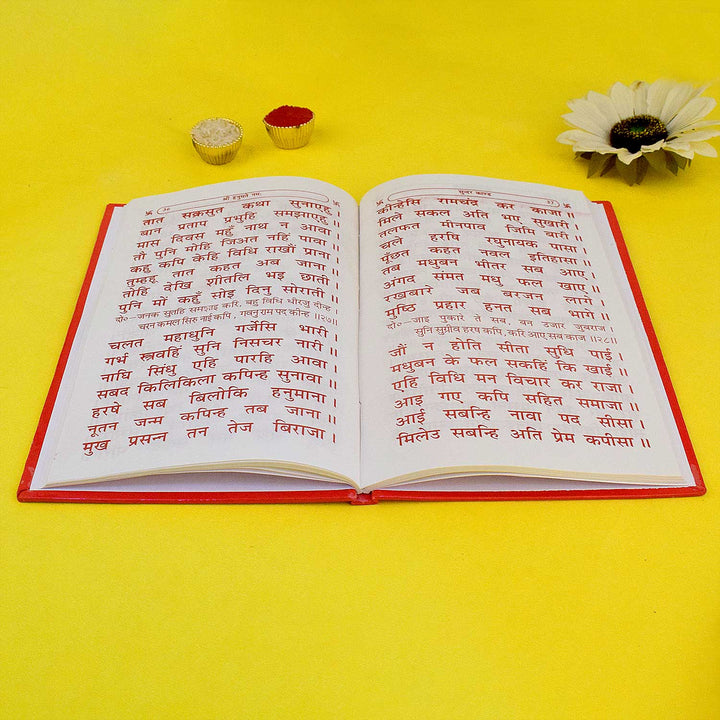 36
श्री हनुमते नमः
तात सक्रसुत कथा सुनाएहु।
बान प्रताप प्रभुहि समझाएहु।।
मास दिवस महुँ नाथ न आवा।
तौ पुनि मोहि जिअत नहिं पावा।।
कहु कपि केहि विधि राखौं प्राना।
तुम्हहू तात कहत अब जाना।।
तोहि देखि शीतलि भइ छाती।
पुनि मों कहुँ सोइ दिनु सोराती।।
दो०-जनक सुतहि समझाइ करि, बहु विधि धीरजु दीन्ह।
चरन कमल सिरु नाई कपि, गवनु राम पद कीन्ह।।२७।।
चलत महाधुनि गर्जेसि भारी।
गर्भ स्त्रवहिं सुनि निसचर नारी।।
नाघि सिंधु एहि पारहि आवा।
सबद किलिकिला कपिन्ह सुनावा।।
हरषे सब बिलोकि हनुमाना।
नूतन जन्म कपिन्ह तब जाना।।
मुख प्रसन्न तन तेज बिराजा।
सुन्दर काण्ड
37
कीन्हेसि रामचंद्र कर काजा।।
मिले सकल अति भए सुखारी।
तलफत मीनपाव जिमि बारी।।
चले हरषि रघुनायक पासा।
पूँछत कहत नवल इतिहासा।।
तब मधुबन भीतर सब आए।
अंगद संमत मधु फल खाए।।
रखबारे जब बरजन लागे।
मुष्ठि प्रहार हनत सब भागे।।
दो०-जाइ पुकारे ते सब, बन उजार जुबराज।
सुनि सुग्रीव हरष कपि, करि आए सब काज।।२८।।
जौं न होति सीता सुधि पाई।
मधुबन के फल सकहिं कि खाई।।
एहि विधि मन विचार कर राजा।
आइ गए कपि सहित समाजा।।
आई सबन्हि नावा पद सीसा।
मिलेउ सबन्हि अति प्रेम कपीसा।।